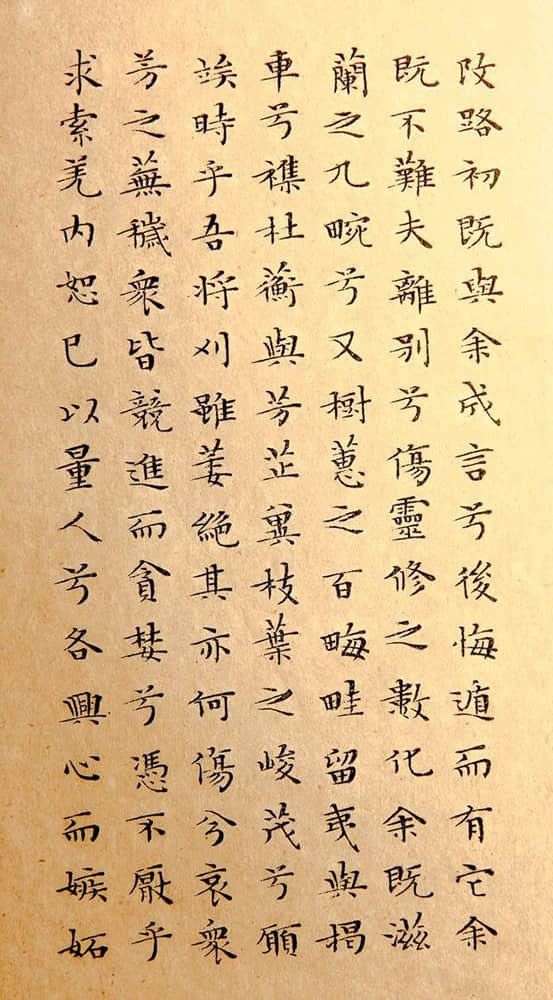 改路初既與余成言兮後悔遁而有它余
既不難夫離別兮傷靈修之數化余既滋
蘭之九畹兮又樹蕙之百畮畦留夷與揭
車兮襍杜蘅與芳芷冀枝葉之峻茂兮願
竢時乎吾將刈雖萎絕其亦何傷兮哀衆
芳之蕪穢衆皆競進而貪婪兮憑不厭乎
求索羌内恕己以量人兮各興心而嫉妬